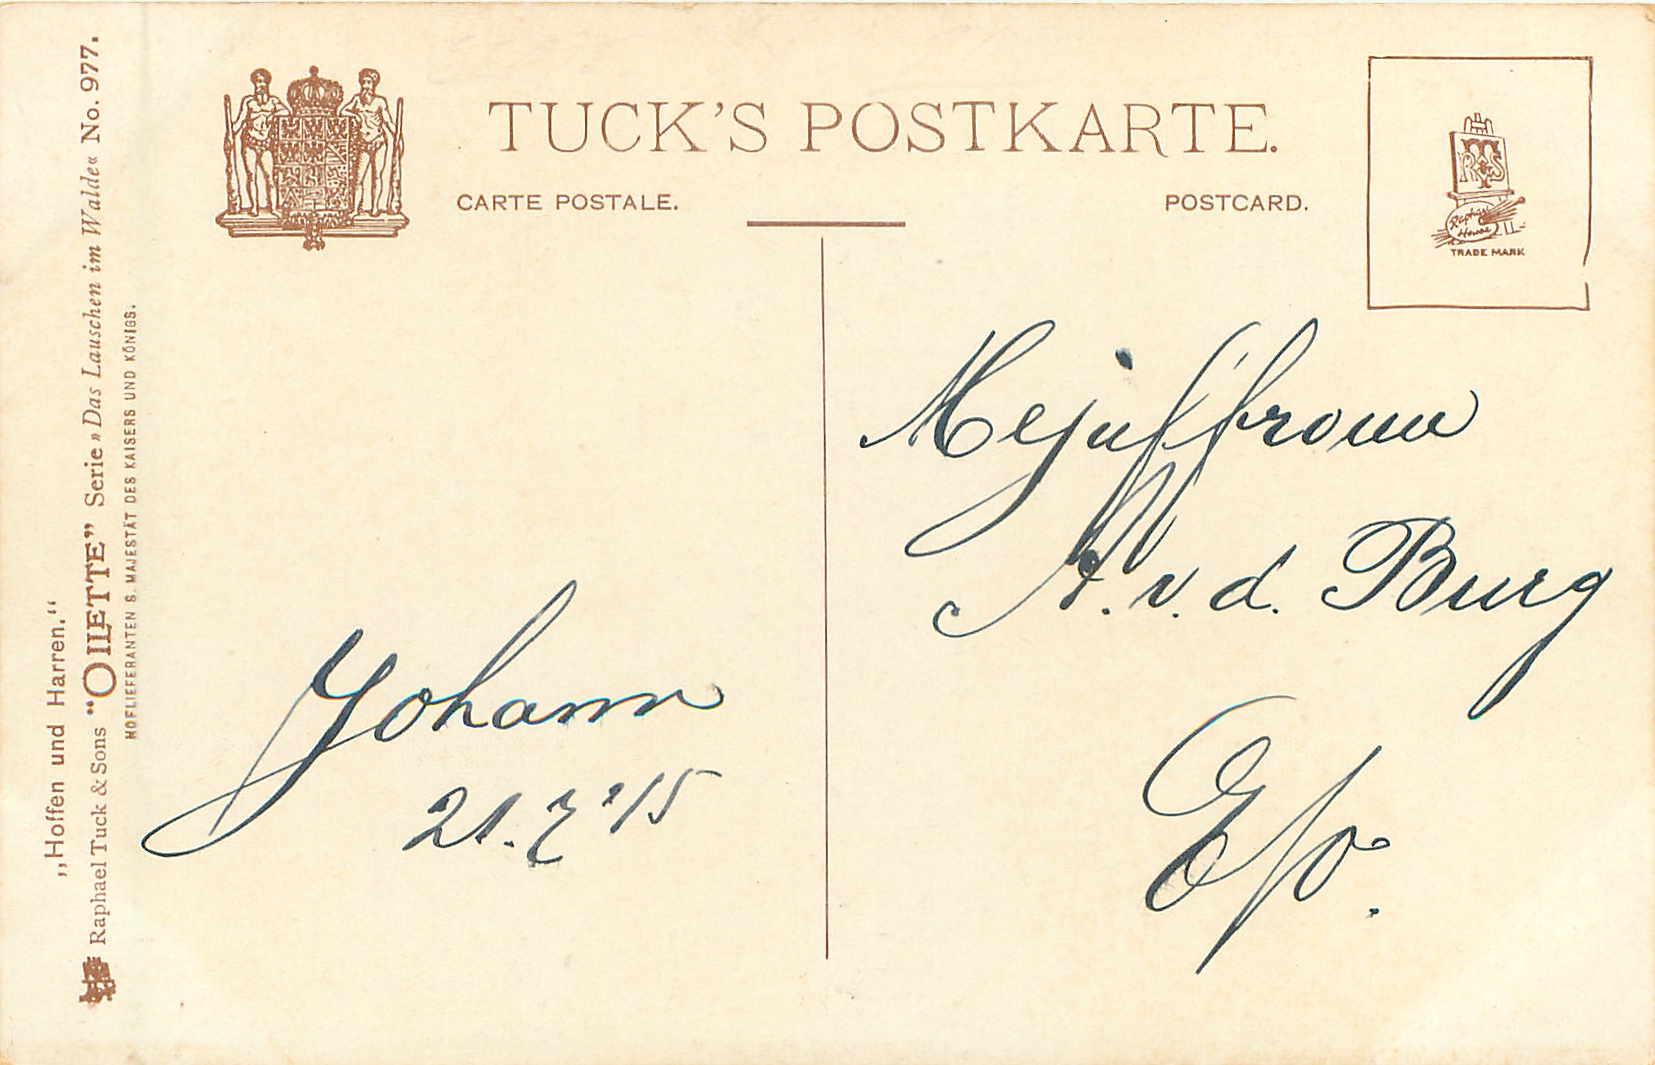 TUCK'S POSTKARTE.
CARTE POSTALE.
POSTCARD.
TRS
Raphael
House
TRADE MARK
„Hoffen und Harren.“
Raphael Tuck & Sons “OILETTE” Serie »Das Lauschen im Walde« No. 977.
HOFLIEFERANTEN S. MAJESTÄT DES KAISERS UND KÖNIGS.
Johann
21.7'15
Mejuffrouw
A. v. d. Burg